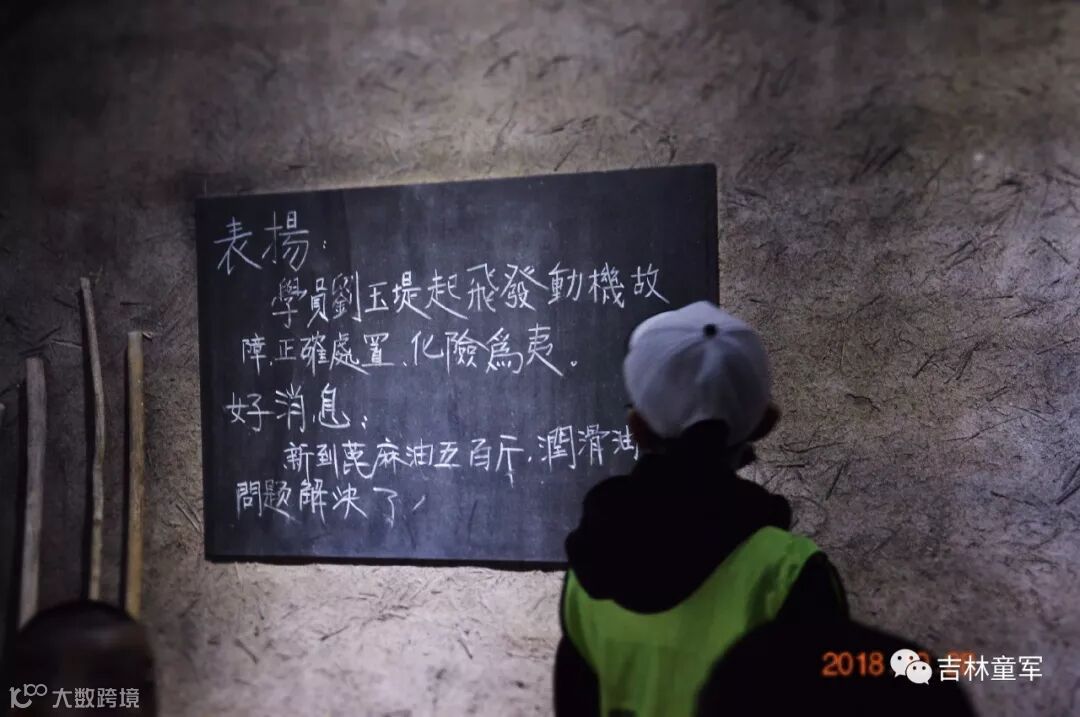 表揚:
學員劉玉堤起飛發動機故
障,正確處置、化險爲夷。
好消息:
新到蓖麻油五百斤,潤滑油
問題解決了
2018
吉林童军
大数跨境